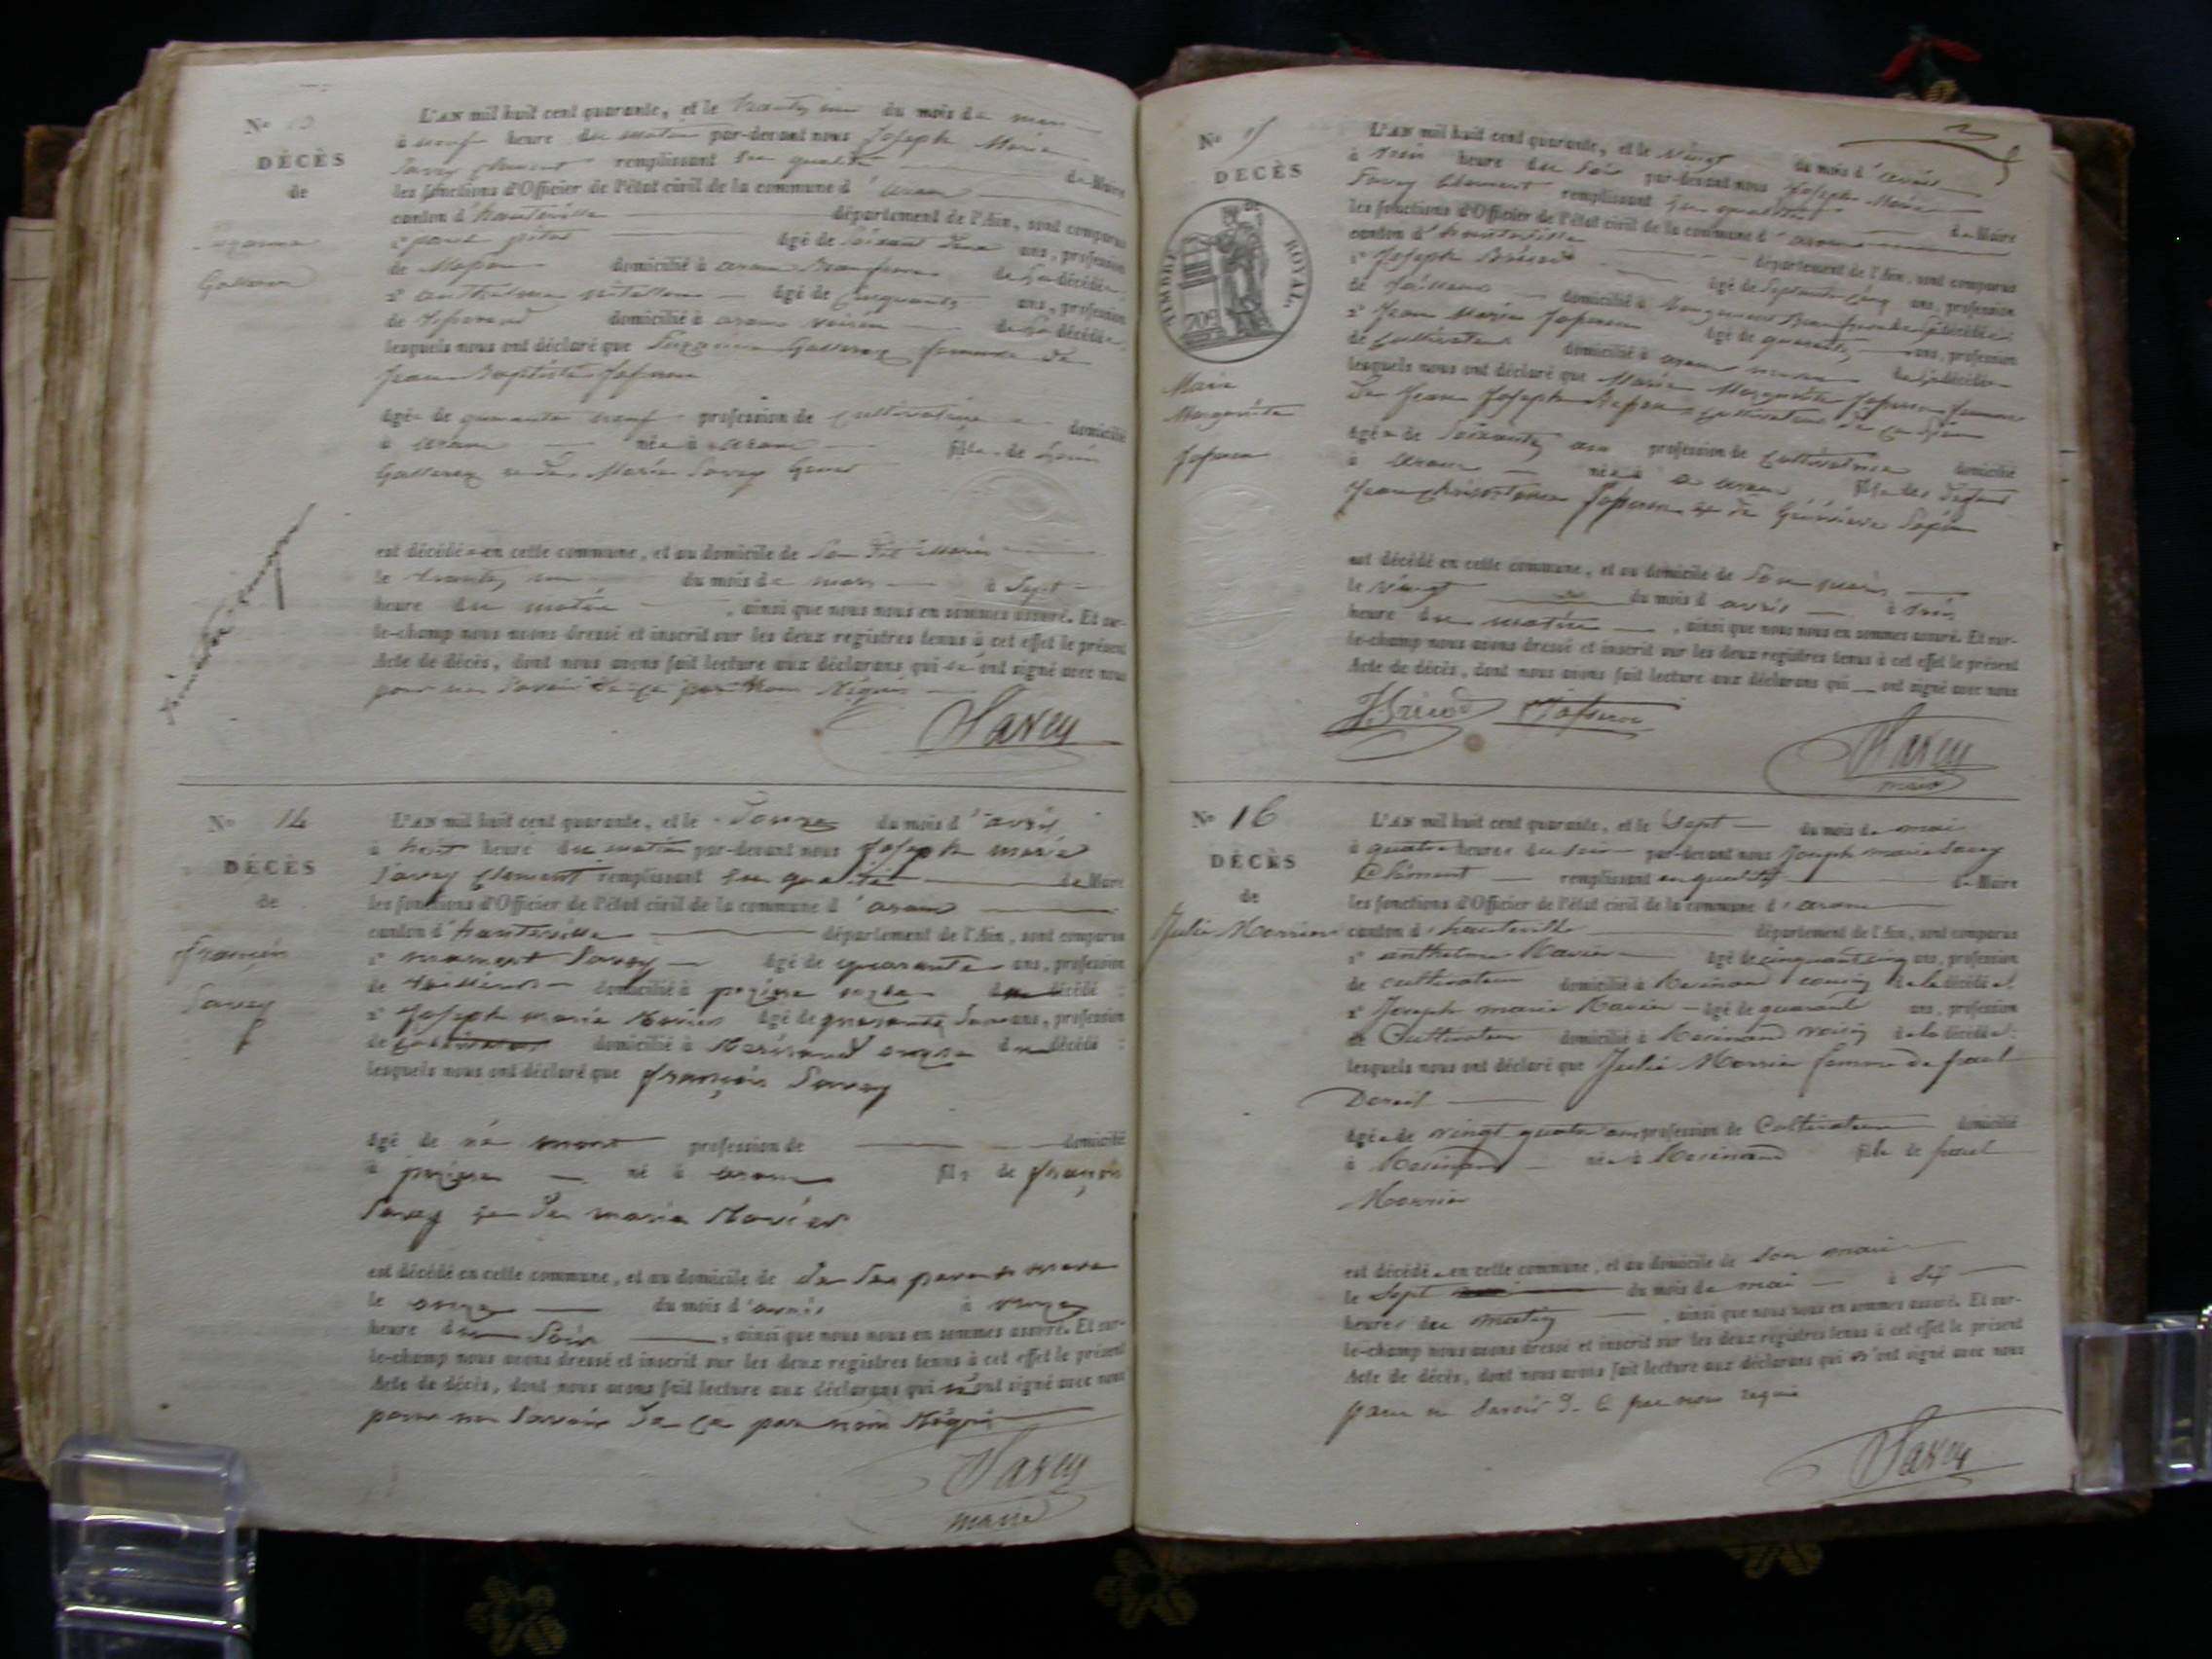 N° 13
DÉCÈS
de
Suzanne
Golleron
L'AN mil huit cent quarante, et le trente un du mois de mars
à neuf heure du matin par-devant nous Joseph Marie
Savey Clement remplissant en qualité de Maire
les fonctions d'Officier de l'état civil de la commune d'aranc
canton d'hauteville département de l'Ain, sont comparus
1° âgé de soixant deux ans, profession
de Maçon domicilié à aranc Beaufrere de la décédée
2° anthelme âgé de cinquante ans, profession
de domicilié à aranc voisin de la décédée
lesquels nous ont déclaré que Suzanne femme de
Jean Baptiste
âgée de quarante neuf profession de cultivatrice domicilié
à aranc née à aranc fille de Louis
et de Marie Savey
est décédée en cette commune, et au domicile de Son dit Maris
le trente un du mois de mars à Sept
heure du matin, ainsi que nous nous en sommes assuré. Et sur-
le-champ nous avons dressé et inscrit sur les deux registres tenus à cet effet le présent
Acte de décès, dont nous avons fait lecture aux déclarans qui n'ont signé avec nous
pour ne Savoir de ce par Nous Réquis
Savey
N° 14
DÉCÈS
de
François
Savey
L'AN mil huit cent quarante, et le Douze du mois d'avril
à huit heure du matin par-devant nous Joseph Marie
Savey Clement remplissant en qualité de Maire
les fonctions d'Officier de l'état civil de la commune d'aranc
canton d'hauteville département de l'Ain, sont comparus
1° Savey âgé de quarante ans, profession
de domicilié à du décédé
2° Joseph marie Ravier âgé de quarante ans, profession
de domicilié à Résinand du décédé
lesquels nous ont déclaré que François Savey
âgé de né mort profession de domicilié
à né à aranc fils de François
Savey et de marie Ravier
est décédé en cette commune, et au domicile de de Ses pere & mere
le onze du mois d'avril à onze
heure du Soir, ainsi que nous nous en sommes assuré. Et sur-
le-champ nous avons dressé et inscrit sur les deux registres tenus à cet effet le présent
Acte de décès, dont nous avons fait lecture aux déclarans qui n'ont signé avec nous
pour ne Savoir de ce par nous Réquis
Savey
maire
N° 15
DÉCÈS
TIMBRE ROYAL
Marie
Margueritte
L'AN mil huit cent quarante, et le Vingt du mois d'avril
à trois heure du Soir par-devant nous Joseph Marie
Savey Clement remplissant en qualité de Maire
les fonctions d'Officier de l'état civil de la commune d'aranc
canton d'hauteville département de l'Ain, sont comparus
1° Joseph Bricod âgé de Septante cinq ans, profession
de domicilié à Beaufrere de la décédée
2° Jean Marie âgé de quarante ans, profession
de Cultivateur domicilié à aranc de la décédée
lesquels nous ont déclaré que Marie Margueritte femme
de Jean Joseph cultivateur
âgée de Soixante ans profession de Cultivatrice domicilié
à aranc née à aranc fille des défunt
Jean et de
est décédé en cette commune, et au domicile de Son mari
le Vingt du mois d'avril à trois
heure du matin, ainsi que nous nous en sommes assuré. Et sur-
le-champ nous avons dressé et inscrit sur les deux registres tenus à cet effet le présent
Acte de décès, dont nous avons fait lecture aux déclarans qui ont signé avec nous
JBricod
Savey
maire
N° 16
DÉCÈS
de
Julie Morrier
L'AN mil huit cent quarante, et le Sept du mois de mai
à quatre heures du soir par-devant nous Joseph marie Savey
Clément remplissant en qualité de Maire
les fonctions d'Officier de l'état civil de la commune d'aranc
canton d'hauteville département de l'Ain, sont comparus
1° anthelme Ravier âgé de cinquante cinq ans, profession
de cultivateur domicilié à Résinand cousin de la décédée
2° Joseph marie Ravier âgé de quarante ans, profession
de Cultivateur domicilié à Résinand voisin de la décédée
lesquels nous ont déclaré que Julie Morrier femme de paul
âgée de vingt quatre ans profession de Cultivateur domicilié
à Résinand née à Résinand fille de paul
Morrier
est décédée en cette commune, et au domicile de Son mari
le Sept du mois de mai à Six
heures du matin, ainsi que nous nous en sommes assuré. Et sur-
le-champ nous avons dressé et inscrit sur les deux registres tenus à cet effet le présent
Acte de décès, dont nous avons fait lecture aux déclarans qui n'ont signé avec nous
pour ne Savoir de ce par nous requis
Savey